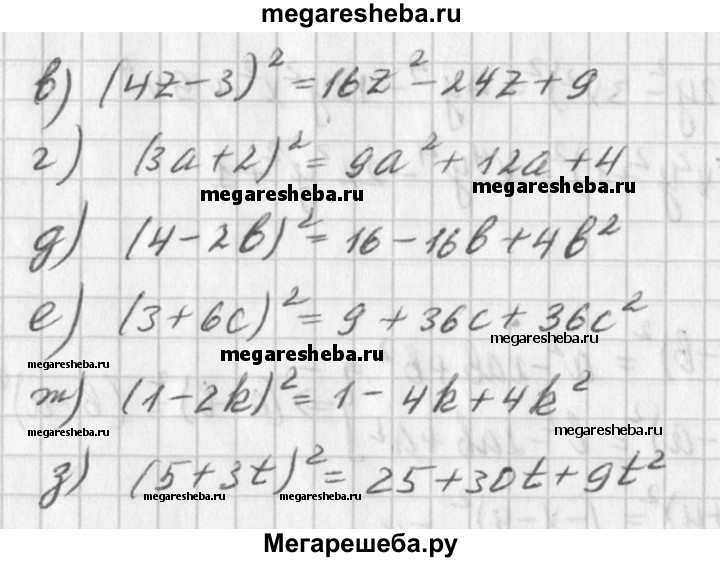 megaresheba.ru
в) (4z-3)²=16z²-24z+9
г) (3a+2)²=9a²+12a+4
megaresheba.ru megaresheba.ru
д) (4-2b)²=16-16b+4b²
е) (3+6c)²=9+36c+36c²
megaresheba.ru megaresheba.ru
ж) (1-2k)²=1-4k+4k²
megaresheba.ru megaresheba.ru
з) (5+3t)²=25+30t+9t²
megaresheba.ru megaresheba.ru
Мегарешеба.ру